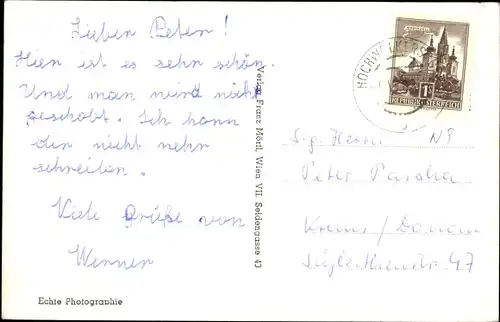 Lieben Peten!
Hier ist es sehr schön.
Und man wird nicht
geschobt. Ich kann
dir nicht mehr
schreiben.
Viele Grüße von
Werner
Echte Photographie
Verlag Franz Mörtl, Wien VII, Seidengasse 43
HOCHWOLKERS
1S
REPUBLIK ÖSTERREICH
S.g. Herrn
NP
Peter Pascha
Krems/Donau
47